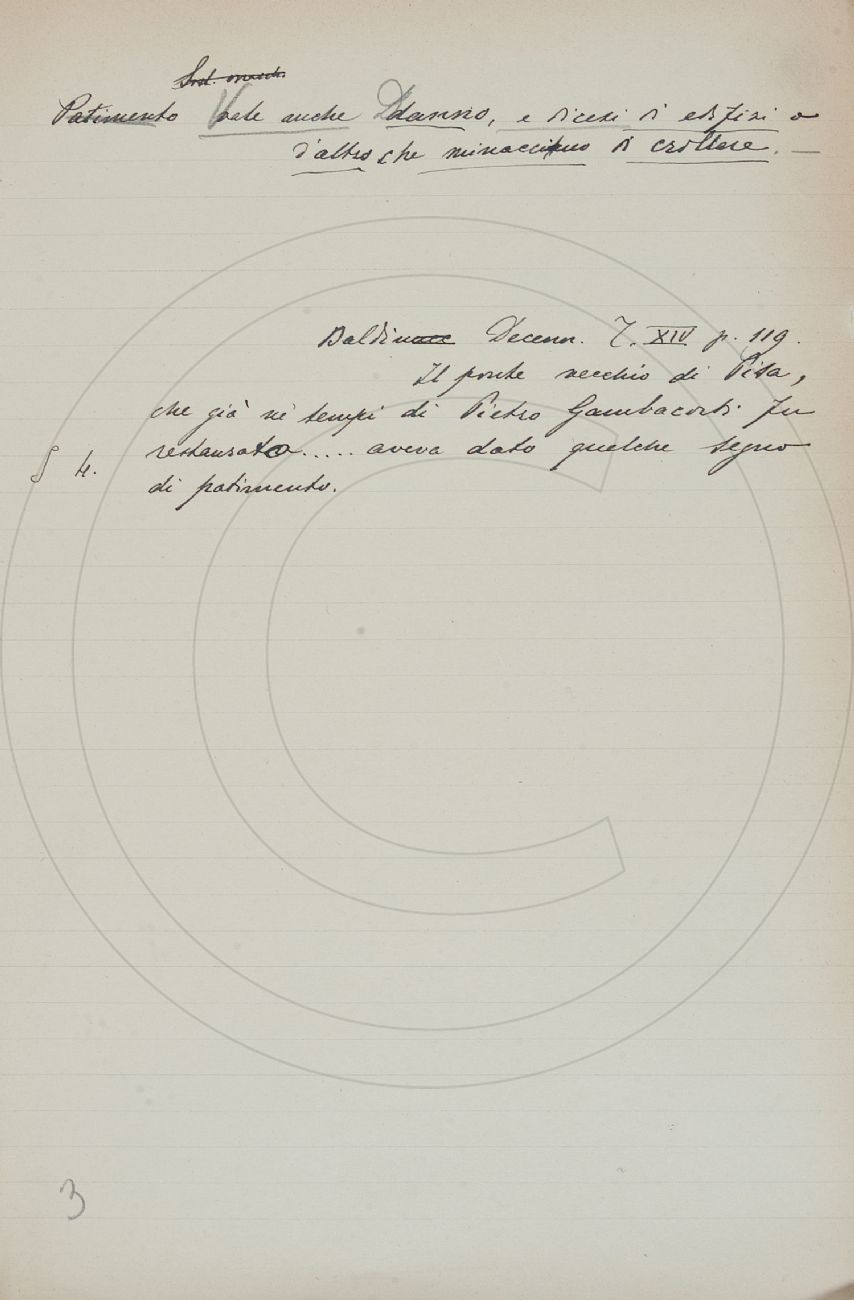 Sost. masch.
Patimento Vale anche Danno, e dicesi di edifizi o
d'altro che minaccino di crollare. —
Baldinucc Decenn. T. XIV p. 119.
Il ponte vecchio di Pisa,
che già nè tempi di Pietro Gambacorti fu
restaurato..... aveva dato qualche segno
§ 4.
di patimento.
3